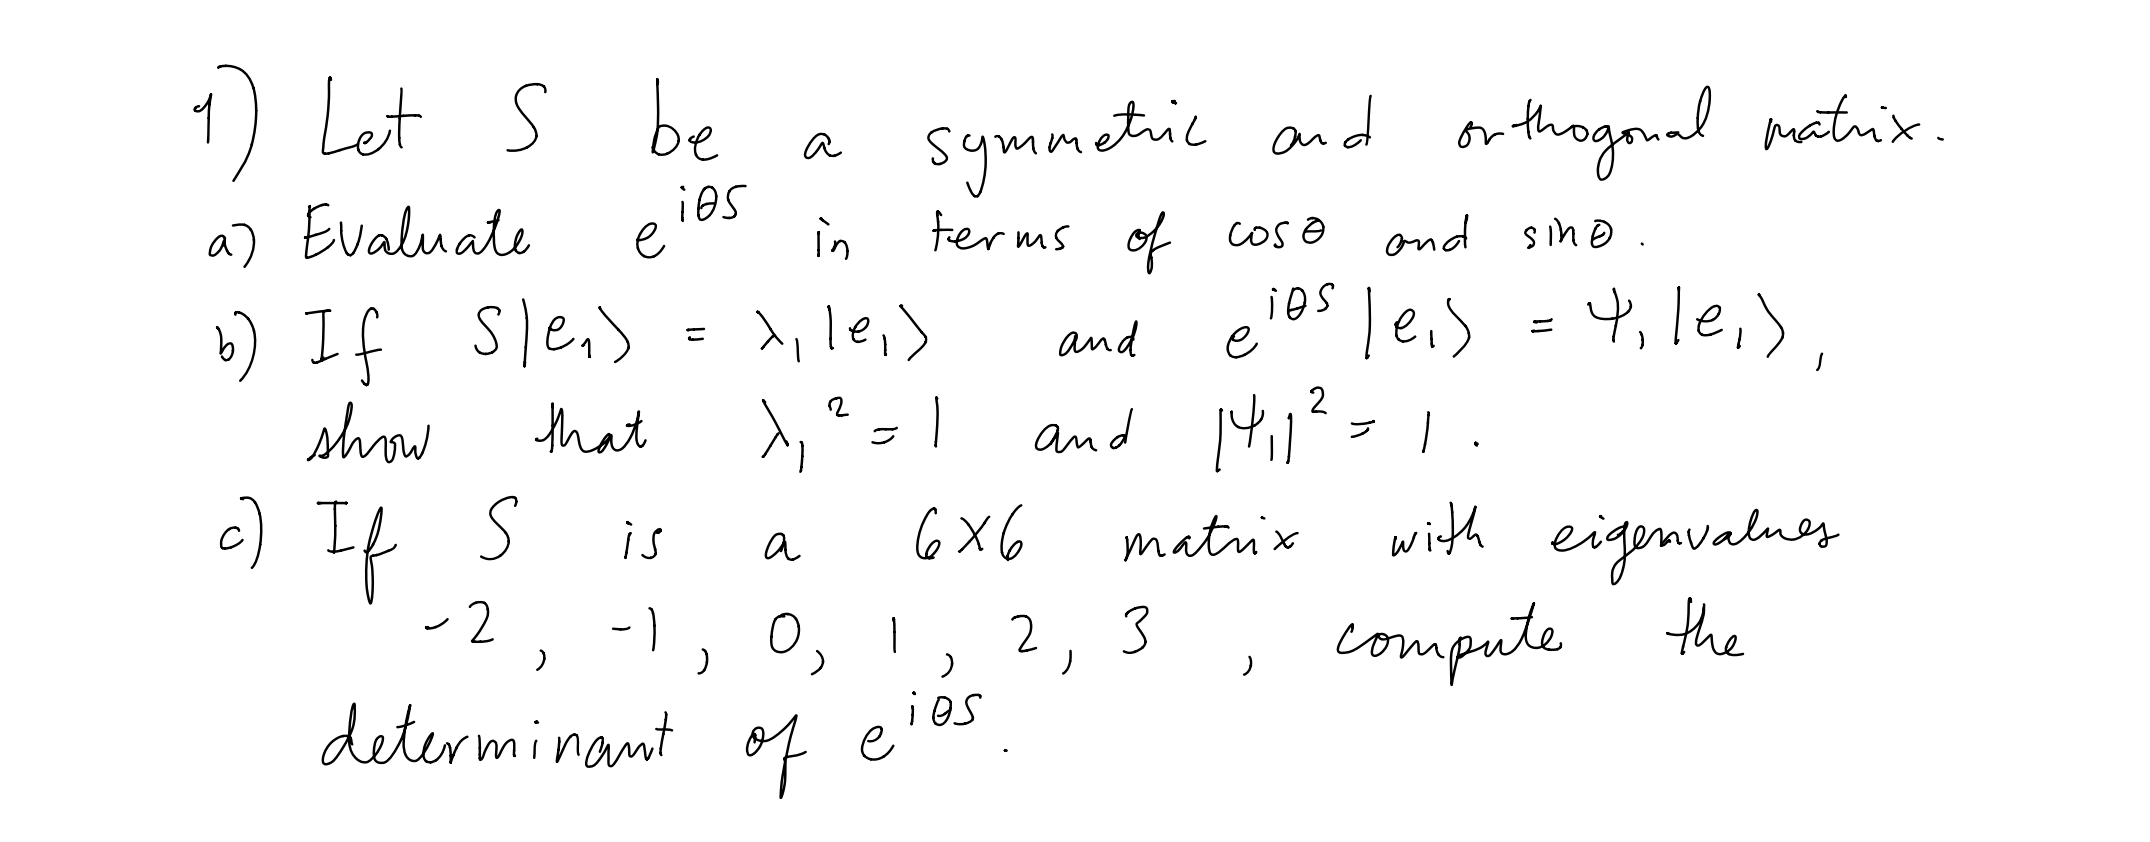 1) Let S be a symmetric and orthogonal matrix.
a) Evaluate e^{iθS} in terms of cosθ and sinθ.
b) If S|e₁⟩ = λ₁|e₁⟩ and e^{iθS}|e₁⟩ = Ψ₁|e₁⟩,
show that λ₁² = 1 and |Ψ₁|² = 1.
c) If S is a 6×6 matrix with eigenvalues
-2, -1, 0, 1, 2, 3, compute the
determinant of e^{iθS}.